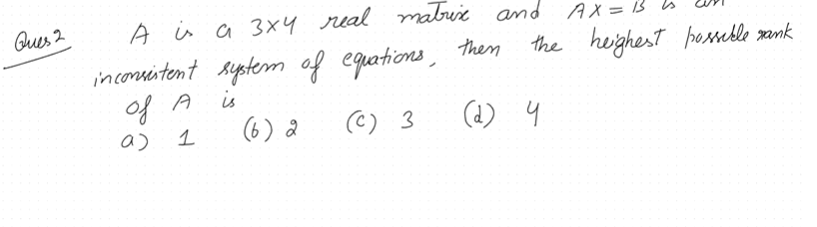 Ques 2 A is a 3x4 real matrix and AX = B is an
inconsistent system of equations, then the heighest possible rank
of A is
a) 1 (b) 2 (c) 3 (d) 4